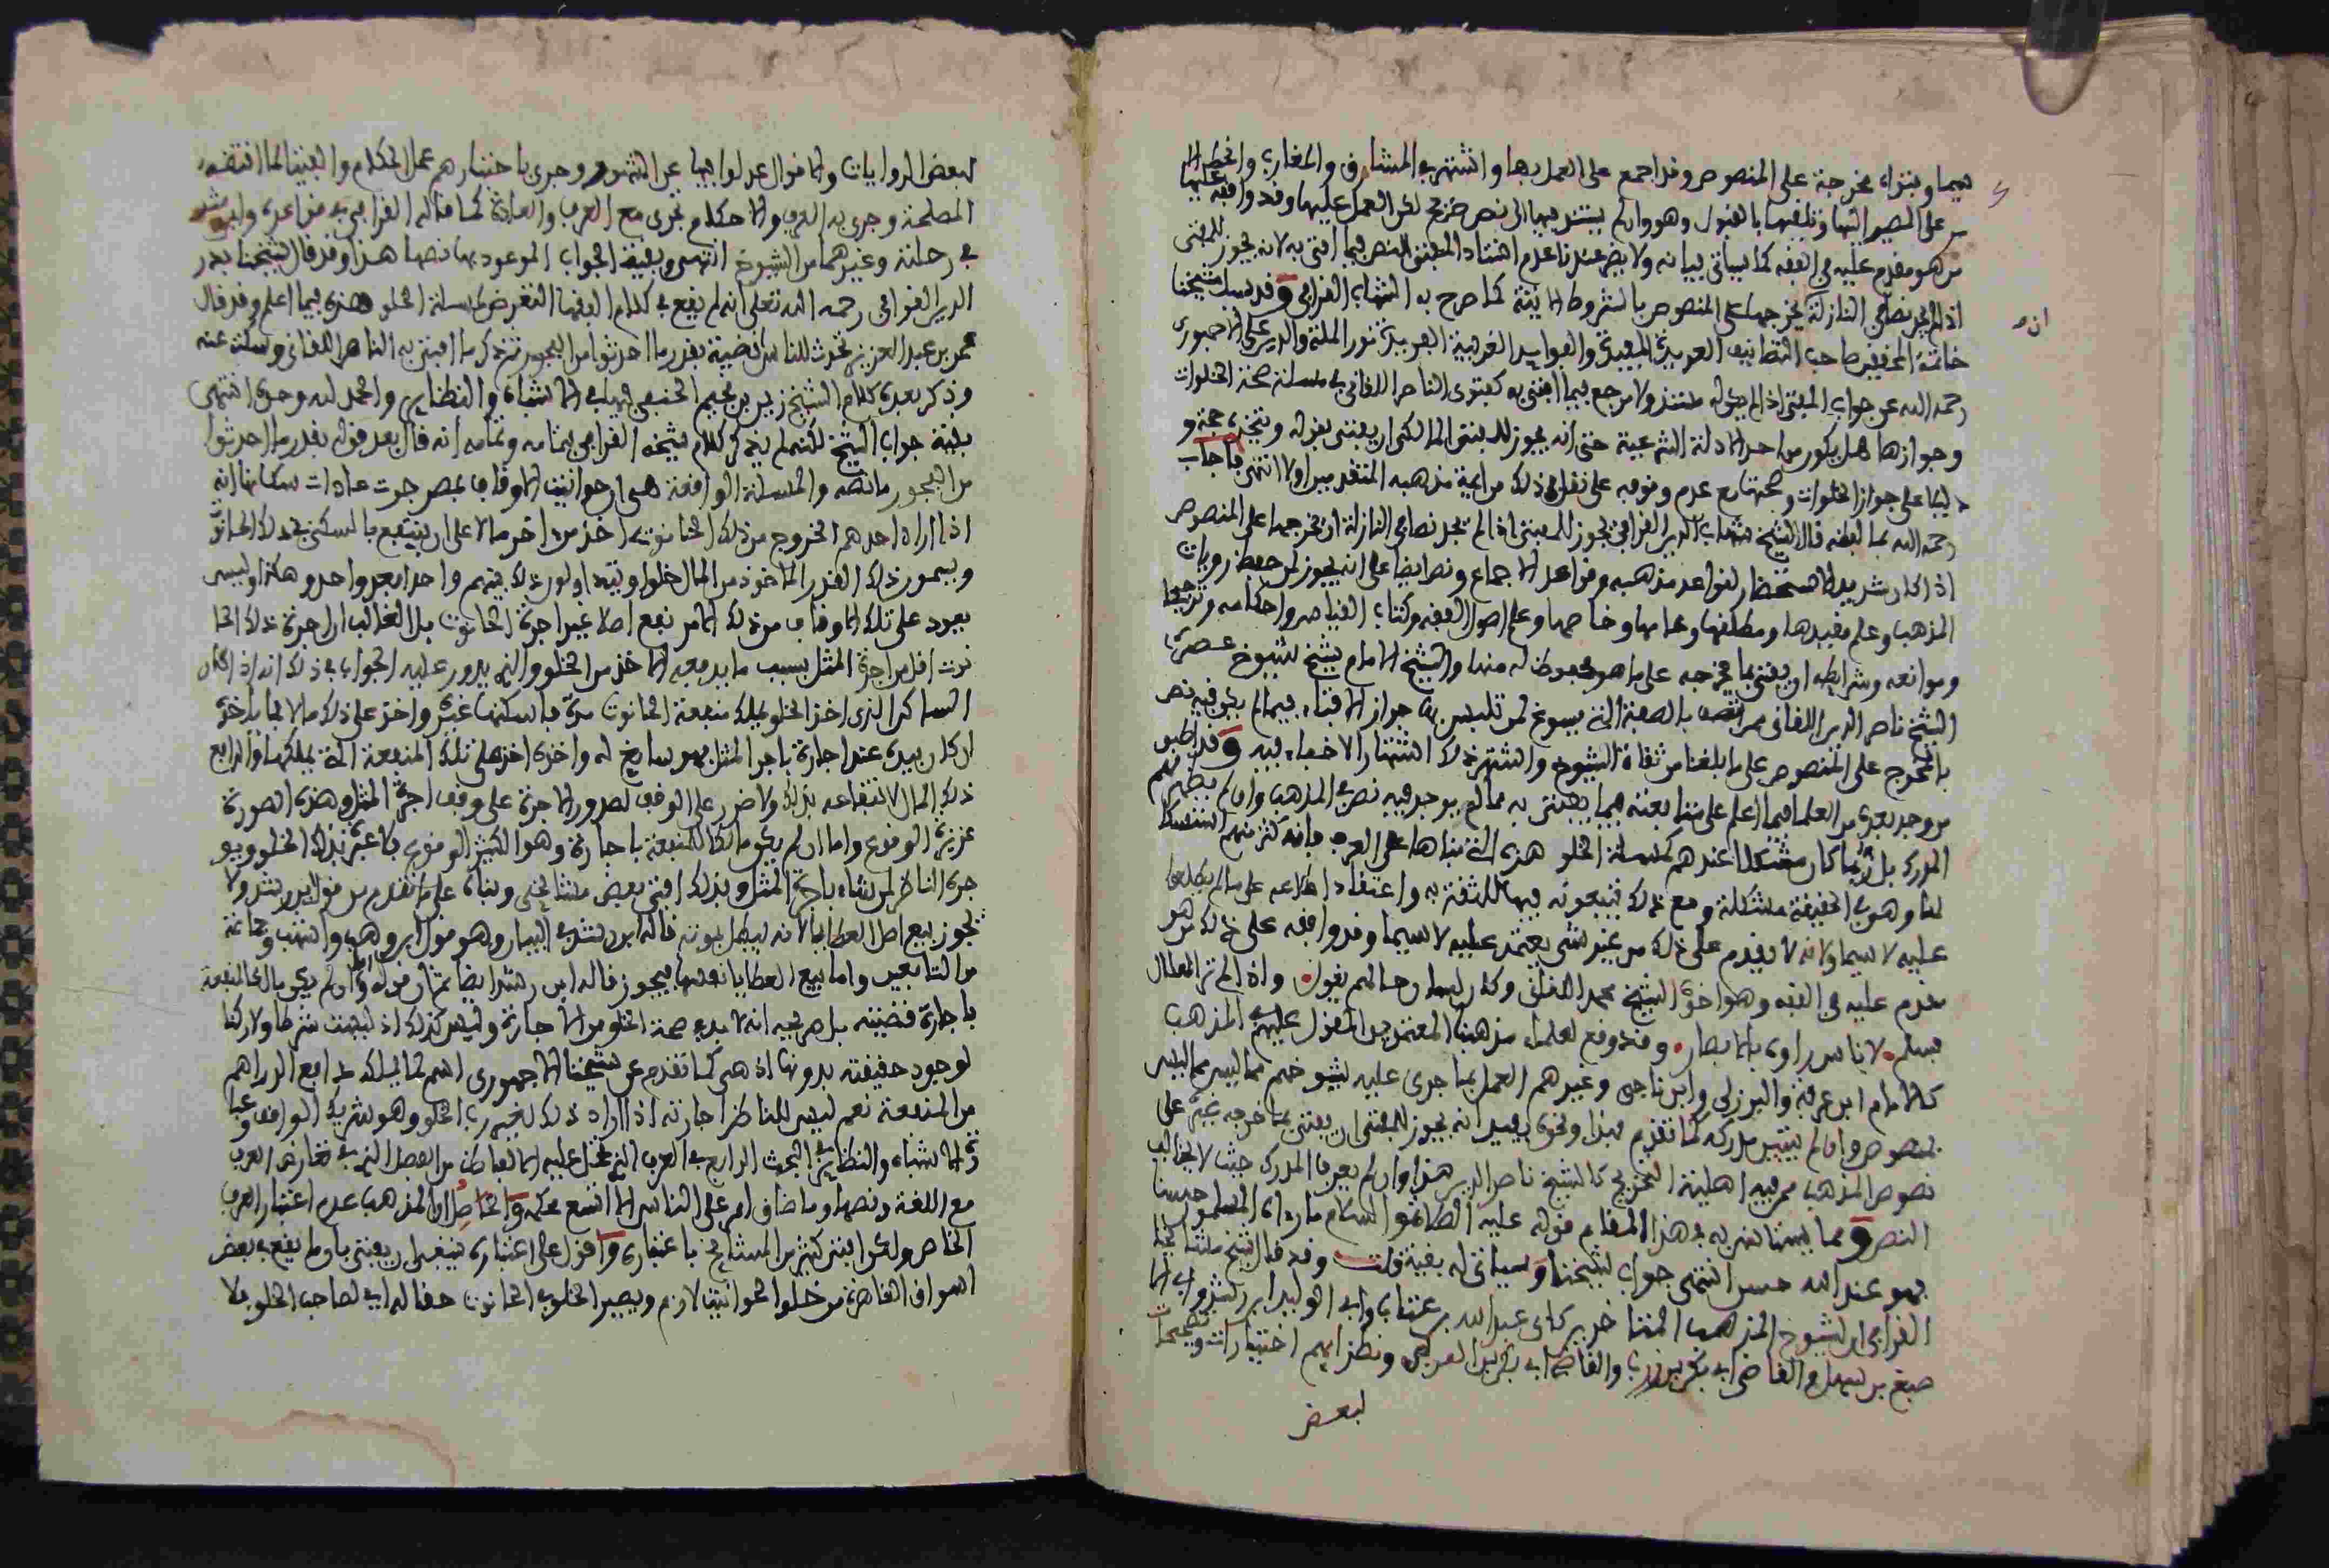 فيها وفتواه مخرجة على المنصوص وقد اجمع على العمل بها واشتهر في المشارق والمغارب وانحط الا
س على المصير اليها وتلقيها بالقبول وهو وان لم يستند فيها الى نص صريح لكن العمل عليها وقد وافقه عليها
من هو مقدم عليه في الفقه كما سياتي بيانه ولا يضر عندنا عدم استناد المفتي للنص فيما افتى به لانه يجوز للمفتي
اذا لم يجد نصا في النازلة يخرجها على المنصوص بالشروط الاتية كما صرح به الشهاب القرافي وقد سئل شيخنا
ان
خاتمة المحققين صاحب التصانيف العديدة المفيدة والفوايد الغريبة الفريدة نور الملة والدين علي الاجهوري
رحمه الله عن جواب المفتي اذا لم يكن له مستند ولا مرجع فيما افتى به كفتوى الناصر اللقاني في مسئلة صحة الخلوات
وجوازها هل يكون من احد الادلة الشرعية حتى انه يجوز للمفتي المالكي ان يفتي بقوله ويتخذه حجة و
دليلا على جواز الخلوات وصحتها مع عدم وقوفه على نقل في ذلك من ايمة مذهبه المتقدمين او لا انتهى فاجاب
رحمه الله بما لفظه قال الشيخ شهاب الدين القرافي يجوز للمفتي اذا لم يجد نصا في النازلة ان يخرجها على المنصوص
اذا كان شديد الاستحضار لقواعد مذهبه وقواعد الاجماع ونص ايضا على انه يجوز لمن حفظ روايات
المذهب وعلم مقيدها ومطلقها وعامها وخاصها وعلم اصول الفقه وكتاب القياس واحكامه وترجيحا
وموانعه وشرايطه ان يفتي بما يخرجه على ما هو محفوظ له منها والشيخ الامام شيخ شيوخ عصره
الشيخ ناصر الدين اللقاني ممن اتصف بالصفة التي يسوغ لمن تلبس بها جواز الافتاء فيما لم يكن فيه نص
بالتخريج على المنصوص على ما بلغنا من ثقاة الشيوخ واشتهر ذلك اشتهارا لا خفاء فيه وقد اطبق
من وجد بعده من العلما فيما اعلم على متابعته فيما يفتي به مما لم يوجد فيه نص في المذهب وان لم يظهر لهم
المدرك بل ربما كان مشكلا عندهم كمسئلة الخلو هذه التي بناها على العرف فانه كثر منهم استشكا
لها وهي في الحقيقة مشكلة ومع ذلك فيتبعونه فيها للثقة به واعتقاد اطلاعه على ما لم يطلعوا
عليه لا سيما ولانه لا يقدم على ذلك من غير شي يعتمد عليه لا سيما وقد وافقه على ذلك من هو
مقدم عليه في الفقه وهو اخوه الشيخ محمد اللقاني وكان لسان حالهم يقول واذا لم تر الهلال
فسلم لاناس راوه بالابصار وقد وقع لعلماء مذهبنا المعتمدين المعول عليهم في المذهب
كالامام ابن عرفة والبرزلي وابن ناجي وغيرهم العمل بما جرى عليه شيوخهم مما ليس
بمنصوص وان لم يتبين مدركه كما تقدم فهذا ونحوه يفيد انه يجوز للمفتي ان يفتي بما خرجه غيره على
نصوص المذهب ممن فيه اهلية التخريج كالشيخ ناصر الدين هذا وان لم يعرف المدرك حيث لا يخالف
النص ومما يستانس به في هذا المقام قوله عليه الصلاة والسلام ما راه المسلمون حسنا
فهو عند الله حسن انتهى جواب شيخنا وسياتي له بقية قلت وقد قال شيخ مشايخنا
القرافي ان لشيوخ المذهب المتاخرين كابي عبد الله بن عتاب وابي الوليد ابن رشد وابي الا
صبغ بن سهل والقاضي ابي بكر بن زرب والقاضي ابي بكر بن العربي ونظرايهم اختيارات وتصحيحات
لبعض
لبعض الروايات والاقوال عدلوا فيها عن المشهور وجرى باختيارهم عمل الحكام والفتيا لما اقتضته
المصلحة وجرى به العرف والاحكام تجري مع العرف والعادة كما قاله القرافي في قواعده وابن رشد
في رحلته وغيرهما من الشيوخ انتهى وبقية الجواب الموعود بها نصها هذا وقد قال شيخنا بدر
الدين القرافي رحمه الله تعلى انه لم يقع في كلام الفقها التعرض لمسئلة الخلو هذه فيما اعلم وقد قال
عمر بن عبد العزيز تحدث للناس اقضية بقدر ما احدثوا من الفجور ثم ذكر ما افتى به الناصر اللقاني وسكت عنه
وذكر بعده كلام الشيخ زين بن نجيم الحنفي فيها في الاشباه والنظاير والحمد لله وحده انتهى
بقية جواب الشيخ لكنه لم يذكر كلام شيخه القرافي بتمامه وتمامه انه قال بعد قوله بقدر ما احدثوا
من الفجور ما نصه والمسئلة الواقعة هي ان حوانيت الاوقاف بمصر جرت عادات سكانها انه
اذا اراد احدهم الخروج من ذلك الحانوت اخذ من اخر مالا على ان ينتفع بالسكنى بذلك الحانوت
ويسمون ذلك القدر الماخوذ من المال خلوا ويتداولون ذلك بينهم واحدا بعد واحد وهكذا وليس
يعود على تلك الاوقاف من ذلك الامر نفع اصلا غير اجرة الحانوت بل الغالب ان اجرة ذلك الحا
نوت اقل من اجرة المثل بسبب ما يدفعه الاخذ من الخلو والذي يدور عليه الجواب في ذلك انه اذا كان
الساكن الذي اخذ الخلو يملك منفعة الحانوت مدة فاسكنها غيره واخذ على ذلك مالا فما ياخذه
ان كان بيده عقد اجارة باجر المثل فهو سايغ له واخذه اخذ على تلك المنفعة التي يملكها والدافع
ذلك المال لانتفاعه بذلك ولا ضرر على الوقف لصدور الاجرة على وفق اجرة المثل وهذه الصورة
عزيزة الوقوع واما ان لم يكن مالكا للمنفعة باجارة وهو الكثير الوقوع فلا عبرة بذلك الخلو ويو
جره الناظر لمن شاء باجرة المثل وبذلك افتى بعض مشايخي وبناه على ما تقدم من قول ابن رشد ولا
يجوز بيع اصل العطايا لانه يبطل بموته قاله ابن رشد في البيان وهو قول ابن وهب واشهب وجماعة
من التابعين واما بيع العطايا نفسها فيجوز قاله ابن رشد ايضا ثم ان قوله واما ان لم يكن مالكا للمنفعة
باجارة قضيته بل صريحه انه لا بد في صحة الخلو من الاجارة وليس كذلك اذ ليست شرطا ولا ركنا
لوجود حقيقته بدونها اذ هي كما تقدم عن شيخنا الاجهوري اسم لما يملكه دافع الدراهم
من المنفعة نعم ليس للناظر اجارته اذا اراد ذلك لغير رب الخلو وهو شريك الواقف وعبا
رة الاشباه والنظاير في المبحث الرابع في العرف الذي تحمل عليه الالفاظ من الفصل الذي في تعارض العرف
مع اللغة ونصها وما ضاق امر على الناس الا اتسع حكمه والحاصل ان المذهب عدم اعتبار العرف
الخاص ولكن افتى كثير من المشايخ باعتباره واقول على اعتباره ينبغي ان يفتى بان ما يقع في بعض
اسواق القاهرة من خلوا الحوانيت لازم ويصير الخلو في الحانوت حقا له اي لصاحب الخلو فلا